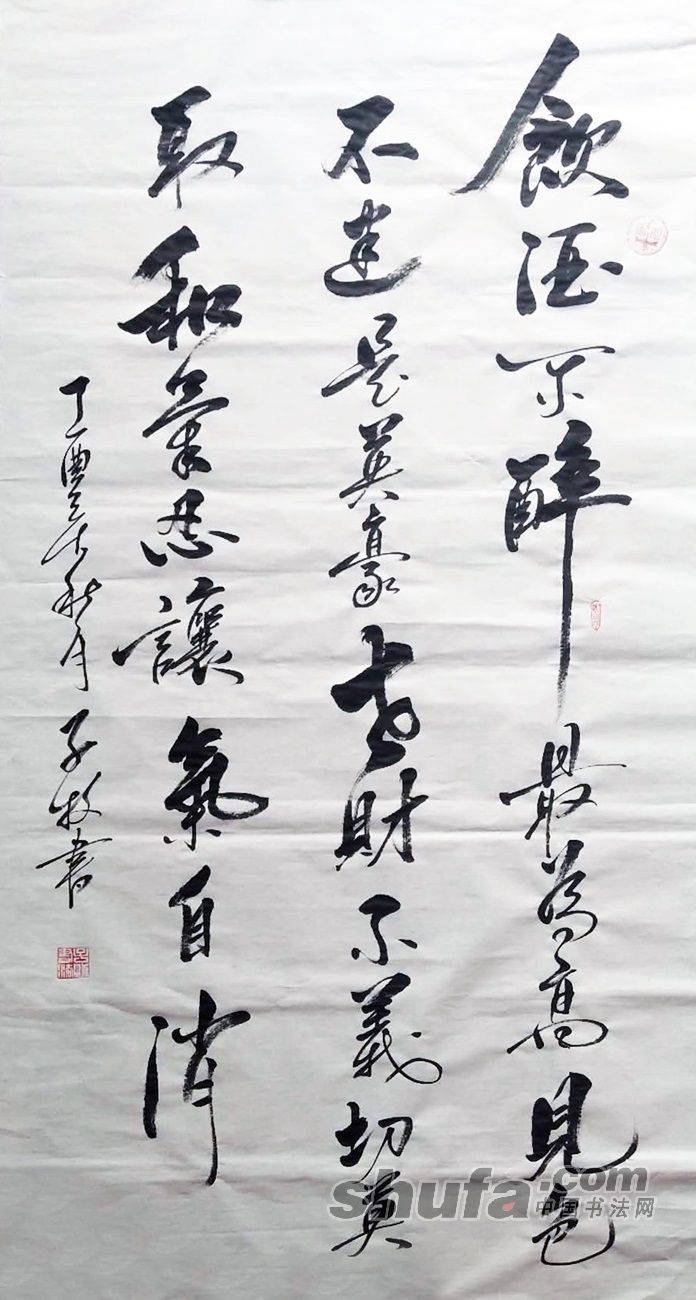 飲酒不醉最為高見色
不迷是英豪世財不義切莫
取和氣忍讓氣自消
丁酉年秋月子牧書
shufa.com
中国书法网